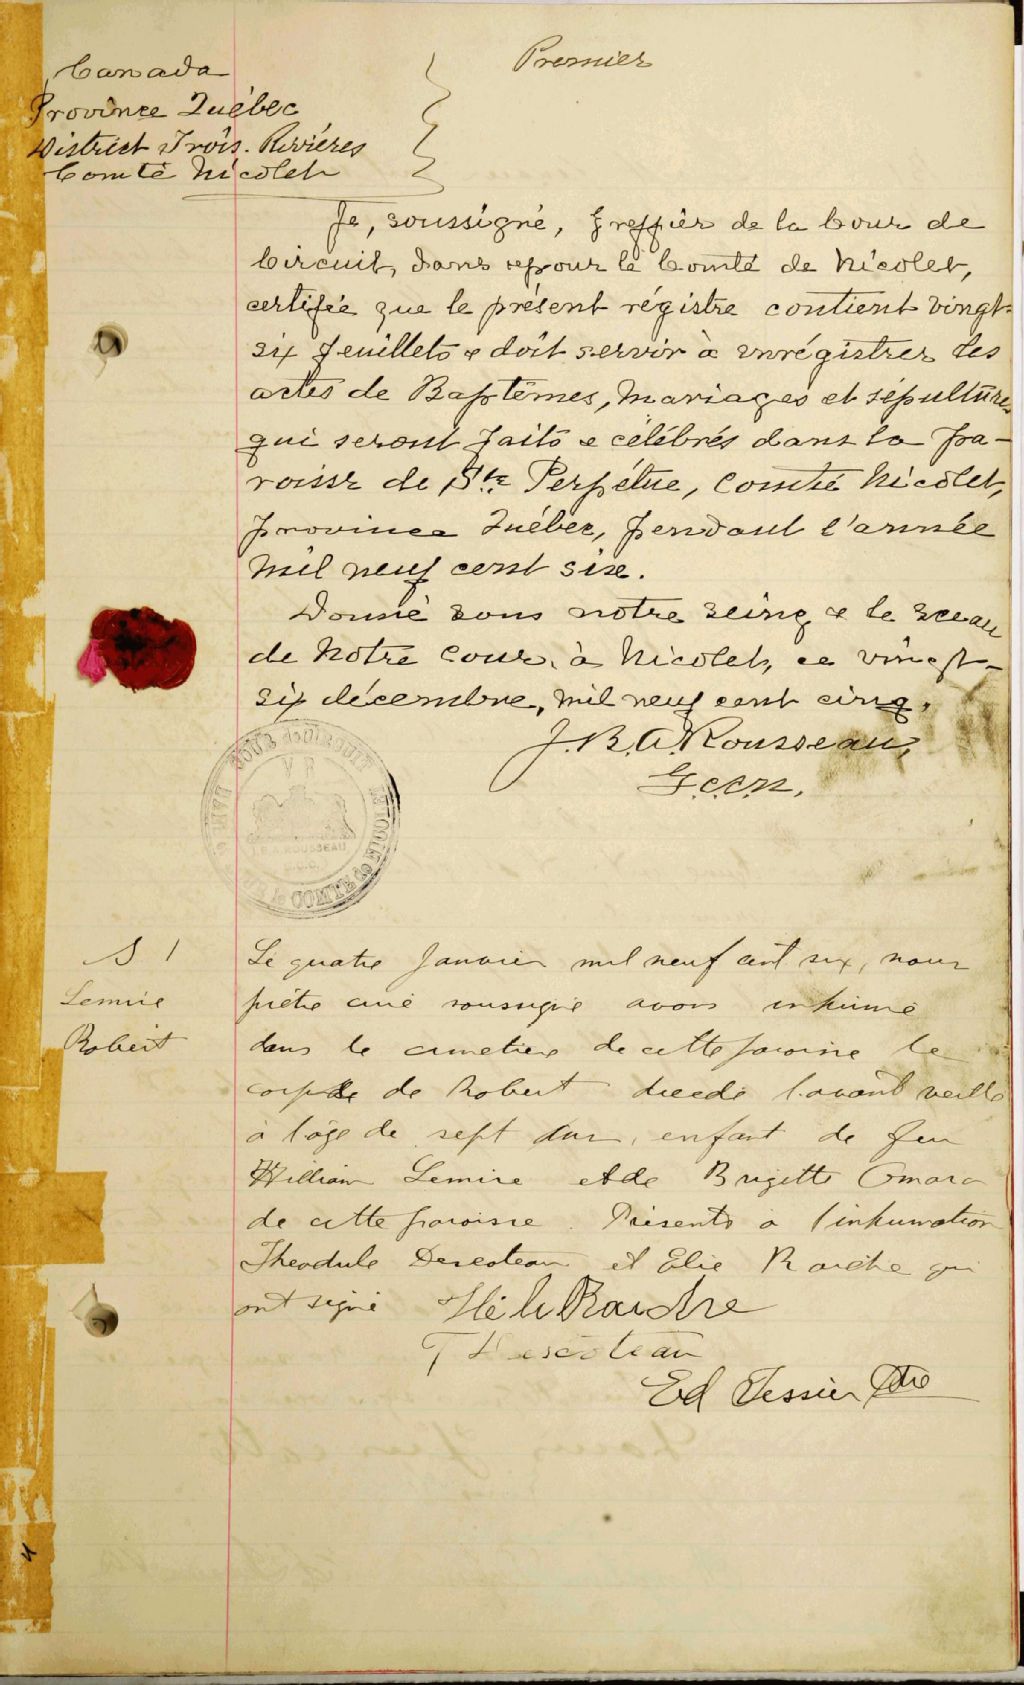 Premier
Canada
Province Québec
District Trois-Rivières
Comté Nicolet
Je, soussigné, Greffier de la Cour de
Circuit, dans & pour le Comté de Nicolet,
certifie que le présent régistre contient vingt-
six feuillets & doit servir à enrégistrer les
actes de Baptêmes, Mariages et sépultures
qui seront faits & célébrés dans la pa-
roisse de Ste Perpétue, Comté Nicolet,
province Québec, pendant l'année
mil neuf cent six.
Donné sous notre seing & le sceau
de Notre Cour, à Nicolet, ce vingt-
six décembre, mil neuf cent cinq.
J.B.A. Rousseau,
G.C.C.N.
COUR de CIRCUIT
V R
J.B.A. ROUSSEAU
COMTÉ de NICOLET
S 1
Lemire
Robert
Le quatre Janvier mil neuf cent six, nous
prêtre curé soussigné avons inhumé
dans le cimetière de cette paroisse le
corps de Robert décédé l'avant veille
à l'âge de sept ans, enfant de feu
William Lemire et de Brigette Omara
de cette paroisse. Présents à l'inhumation
Theodule Descoteau et Elie Raiche qui
ont signé
T Descoteau
Ed Tessier Ptre
4